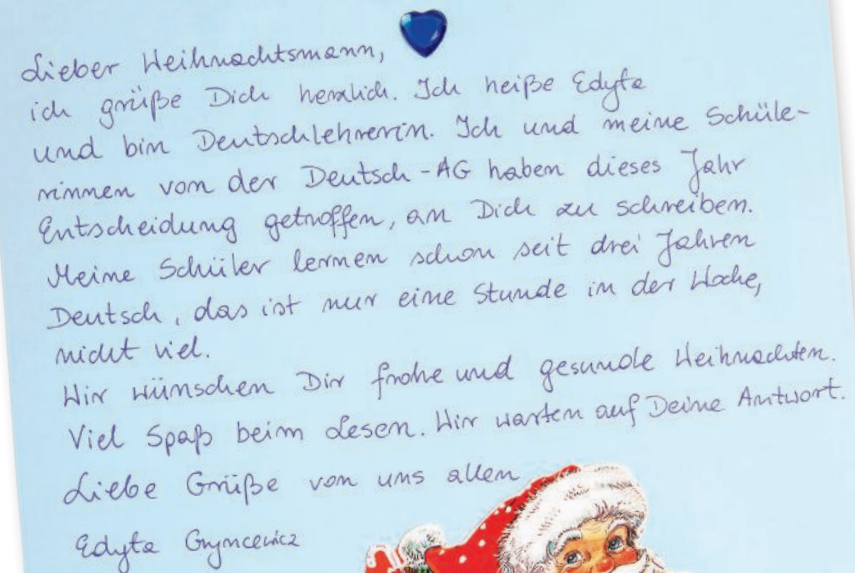 Lieber Weihnachtsmann,
ich grüße Dich herzlich. Ich heiße Edyta
und bin Deutschlehrerin. Ich und meine Schüle-
rinnen von der Deutsch-AG haben dieses Jahr
Entscheidung getroffen, an Dich zu schreiben.
Meine Schüler lernen schon seit drei Jahren
Deutsch, das ist nur eine Stunde in der Woche,
nicht viel.
Wir wünschen Dir frohe und gesunde Weihnachten.
Viel Spaß beim Lesen. Wir warten auf Deine Antwort.
Liebe Grüße von uns allen
Edyta